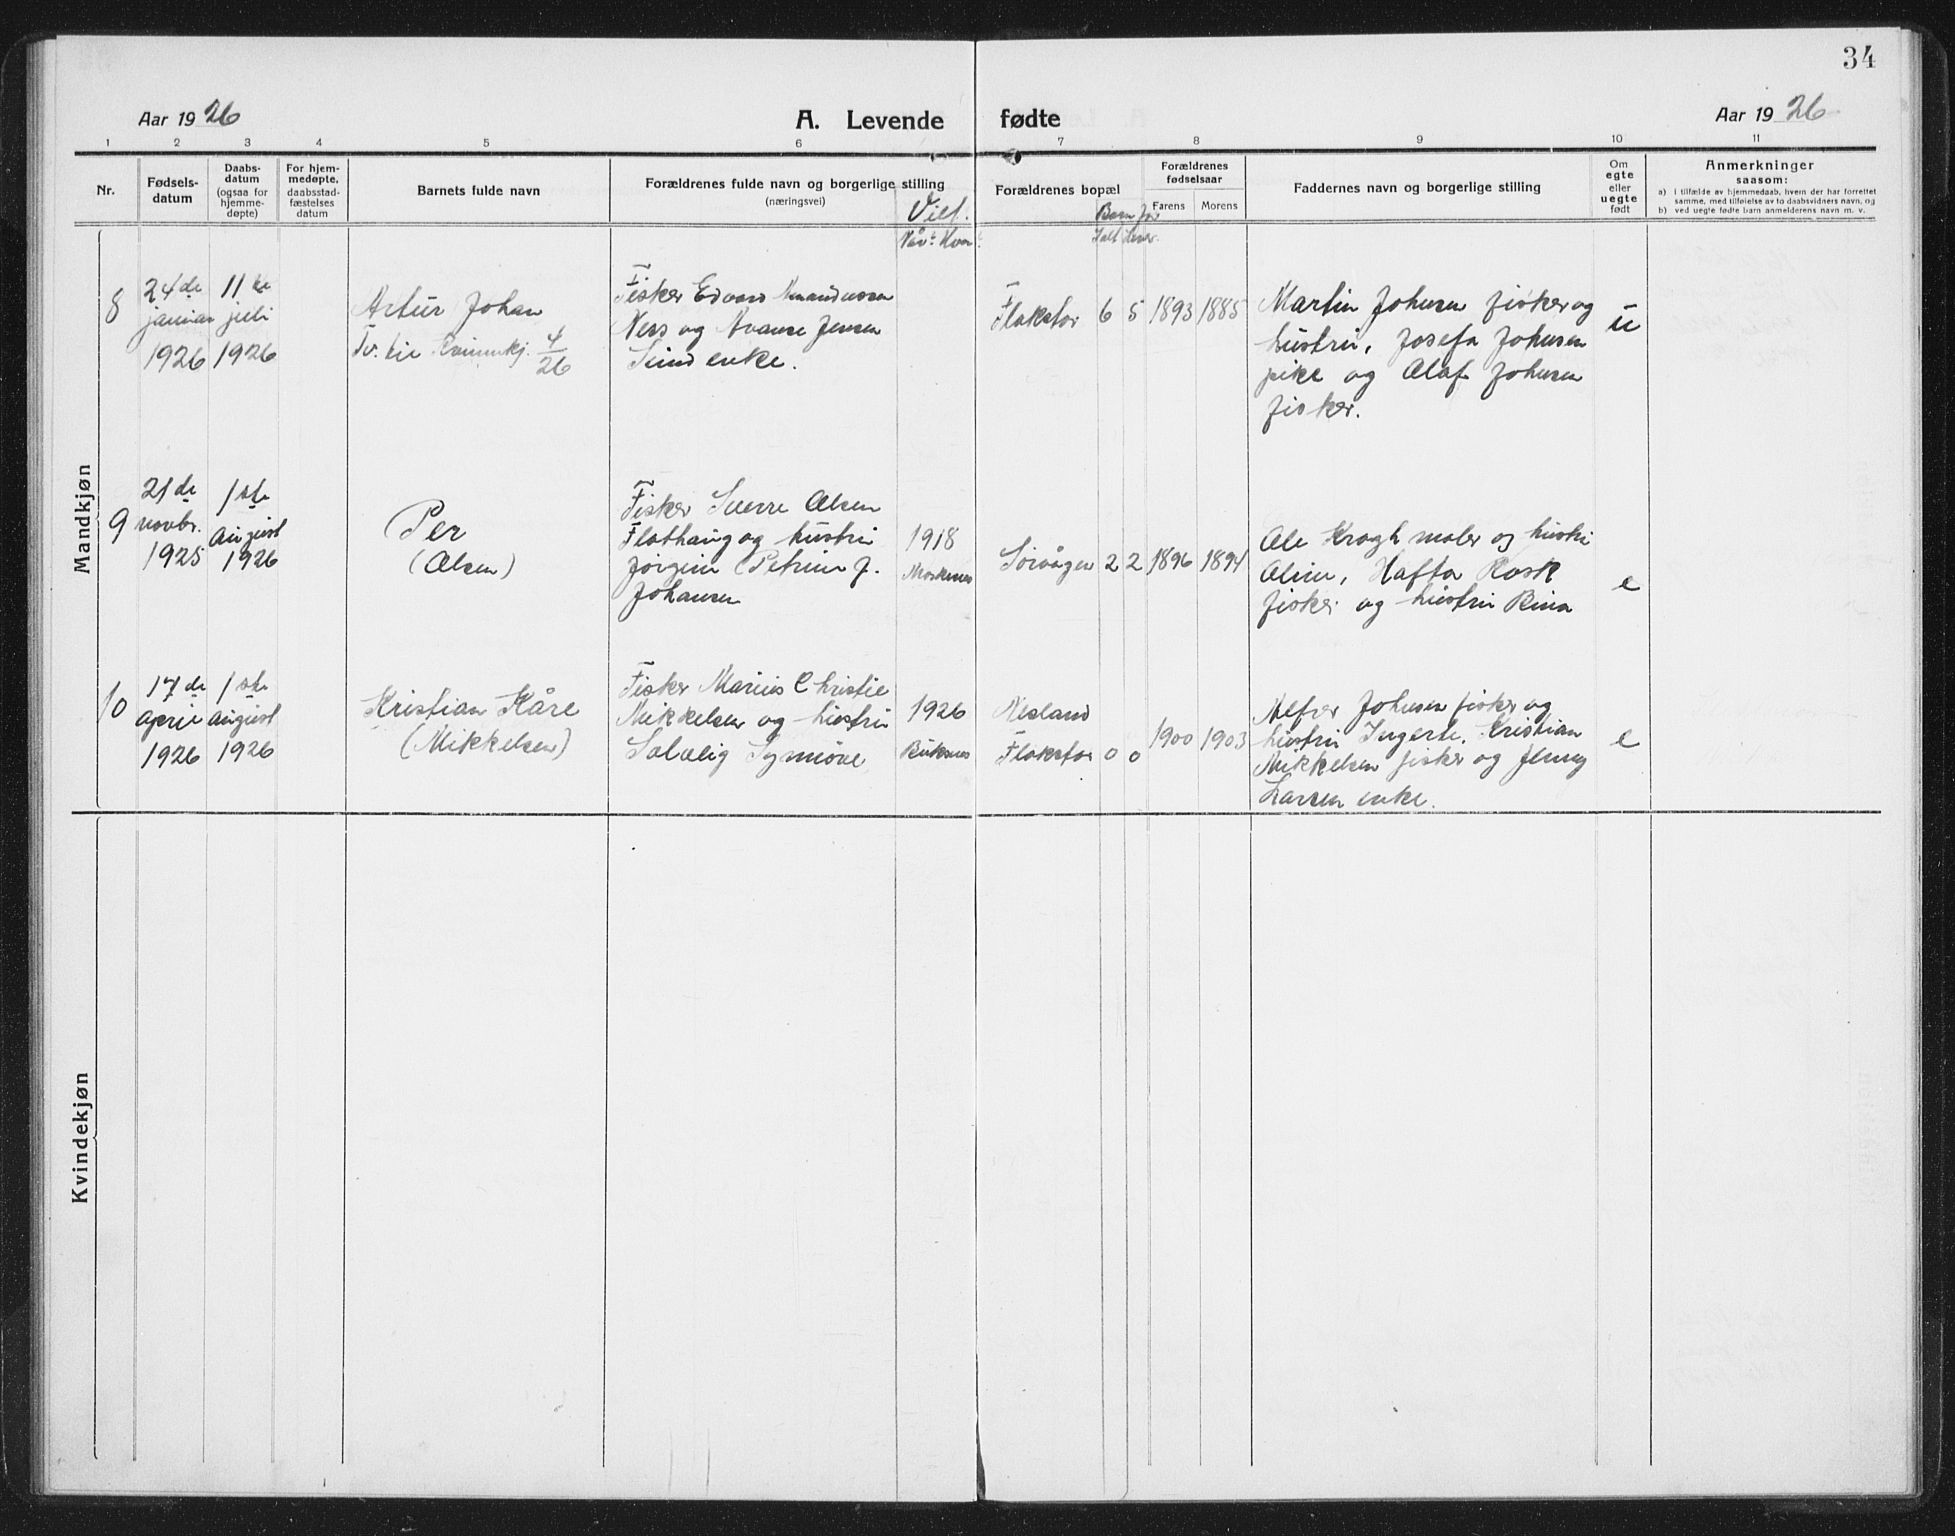 34
Aar 1926
A. Levende fødte
Aar 1926
1 2 3 4 5 6 7 8 9 10 11
Nr.
Fødsels-
datum
Daabs-
datum
(ogsaa for
hjemme-
døpte)
For hjem-
medøpte,
daabsstad-
fæstelses
datum
Barnets fulde navn
Forældrenes fulde navn og borgerlige stilling
(næringsvei)
Viet.
Når? Hvor?
Forældrenes bopæl
Barn før
Ialt
Forældrenes
fødselsaar
Farens Morens
Faddernes navn og borgerlige stilling
Om
egte
eller
uegte
født
Anmerkninger
saasom:
a) i tilfælde av hjemmedaab, hvem der har forrettet
samme, med tilføielse av to daabsvidners navn, og
b) ved uegte fødte barn anmelderens navn m. v.
Mandkjøn
8
24de
januar
1926
11te
juli
1926
Artur Johan
4/26
Fisker Edvard
Ness og Jensen
Sund enke.
Flakstad
6 5
1893 1885
Martin Johnsen fisker og
hustru, Josefa Johnsen
pike og Olaf Johnsen
fisker.
u
9
21de
novbr.
1925
1ste
August
1926
Per
(Olsen)
Fisker Sverre Olsen
Flathaug og hustru
Jørgine Petrine J.
Johansen
1918
Moskenes
Sørvågen
2 2
1896 1894
Ole Krogh maler og hustru
Oline, Hafta Rask
fisker og hustru Rina
e
10
17de
april
1926
1ste
august
1926
Kristian Kåre
(Mikkelsen)
Fisker Marius Christie
Mikkelsen og hustru
Solveig Synnøve
1926
Buksnes
Nesland
Flakstad
0 0
1900 1903
Alfred Johnsen fisker og
hustru Kristian
Mikkelsen fisker og Jenny
Larsen enke.
e
Kvindekjøn